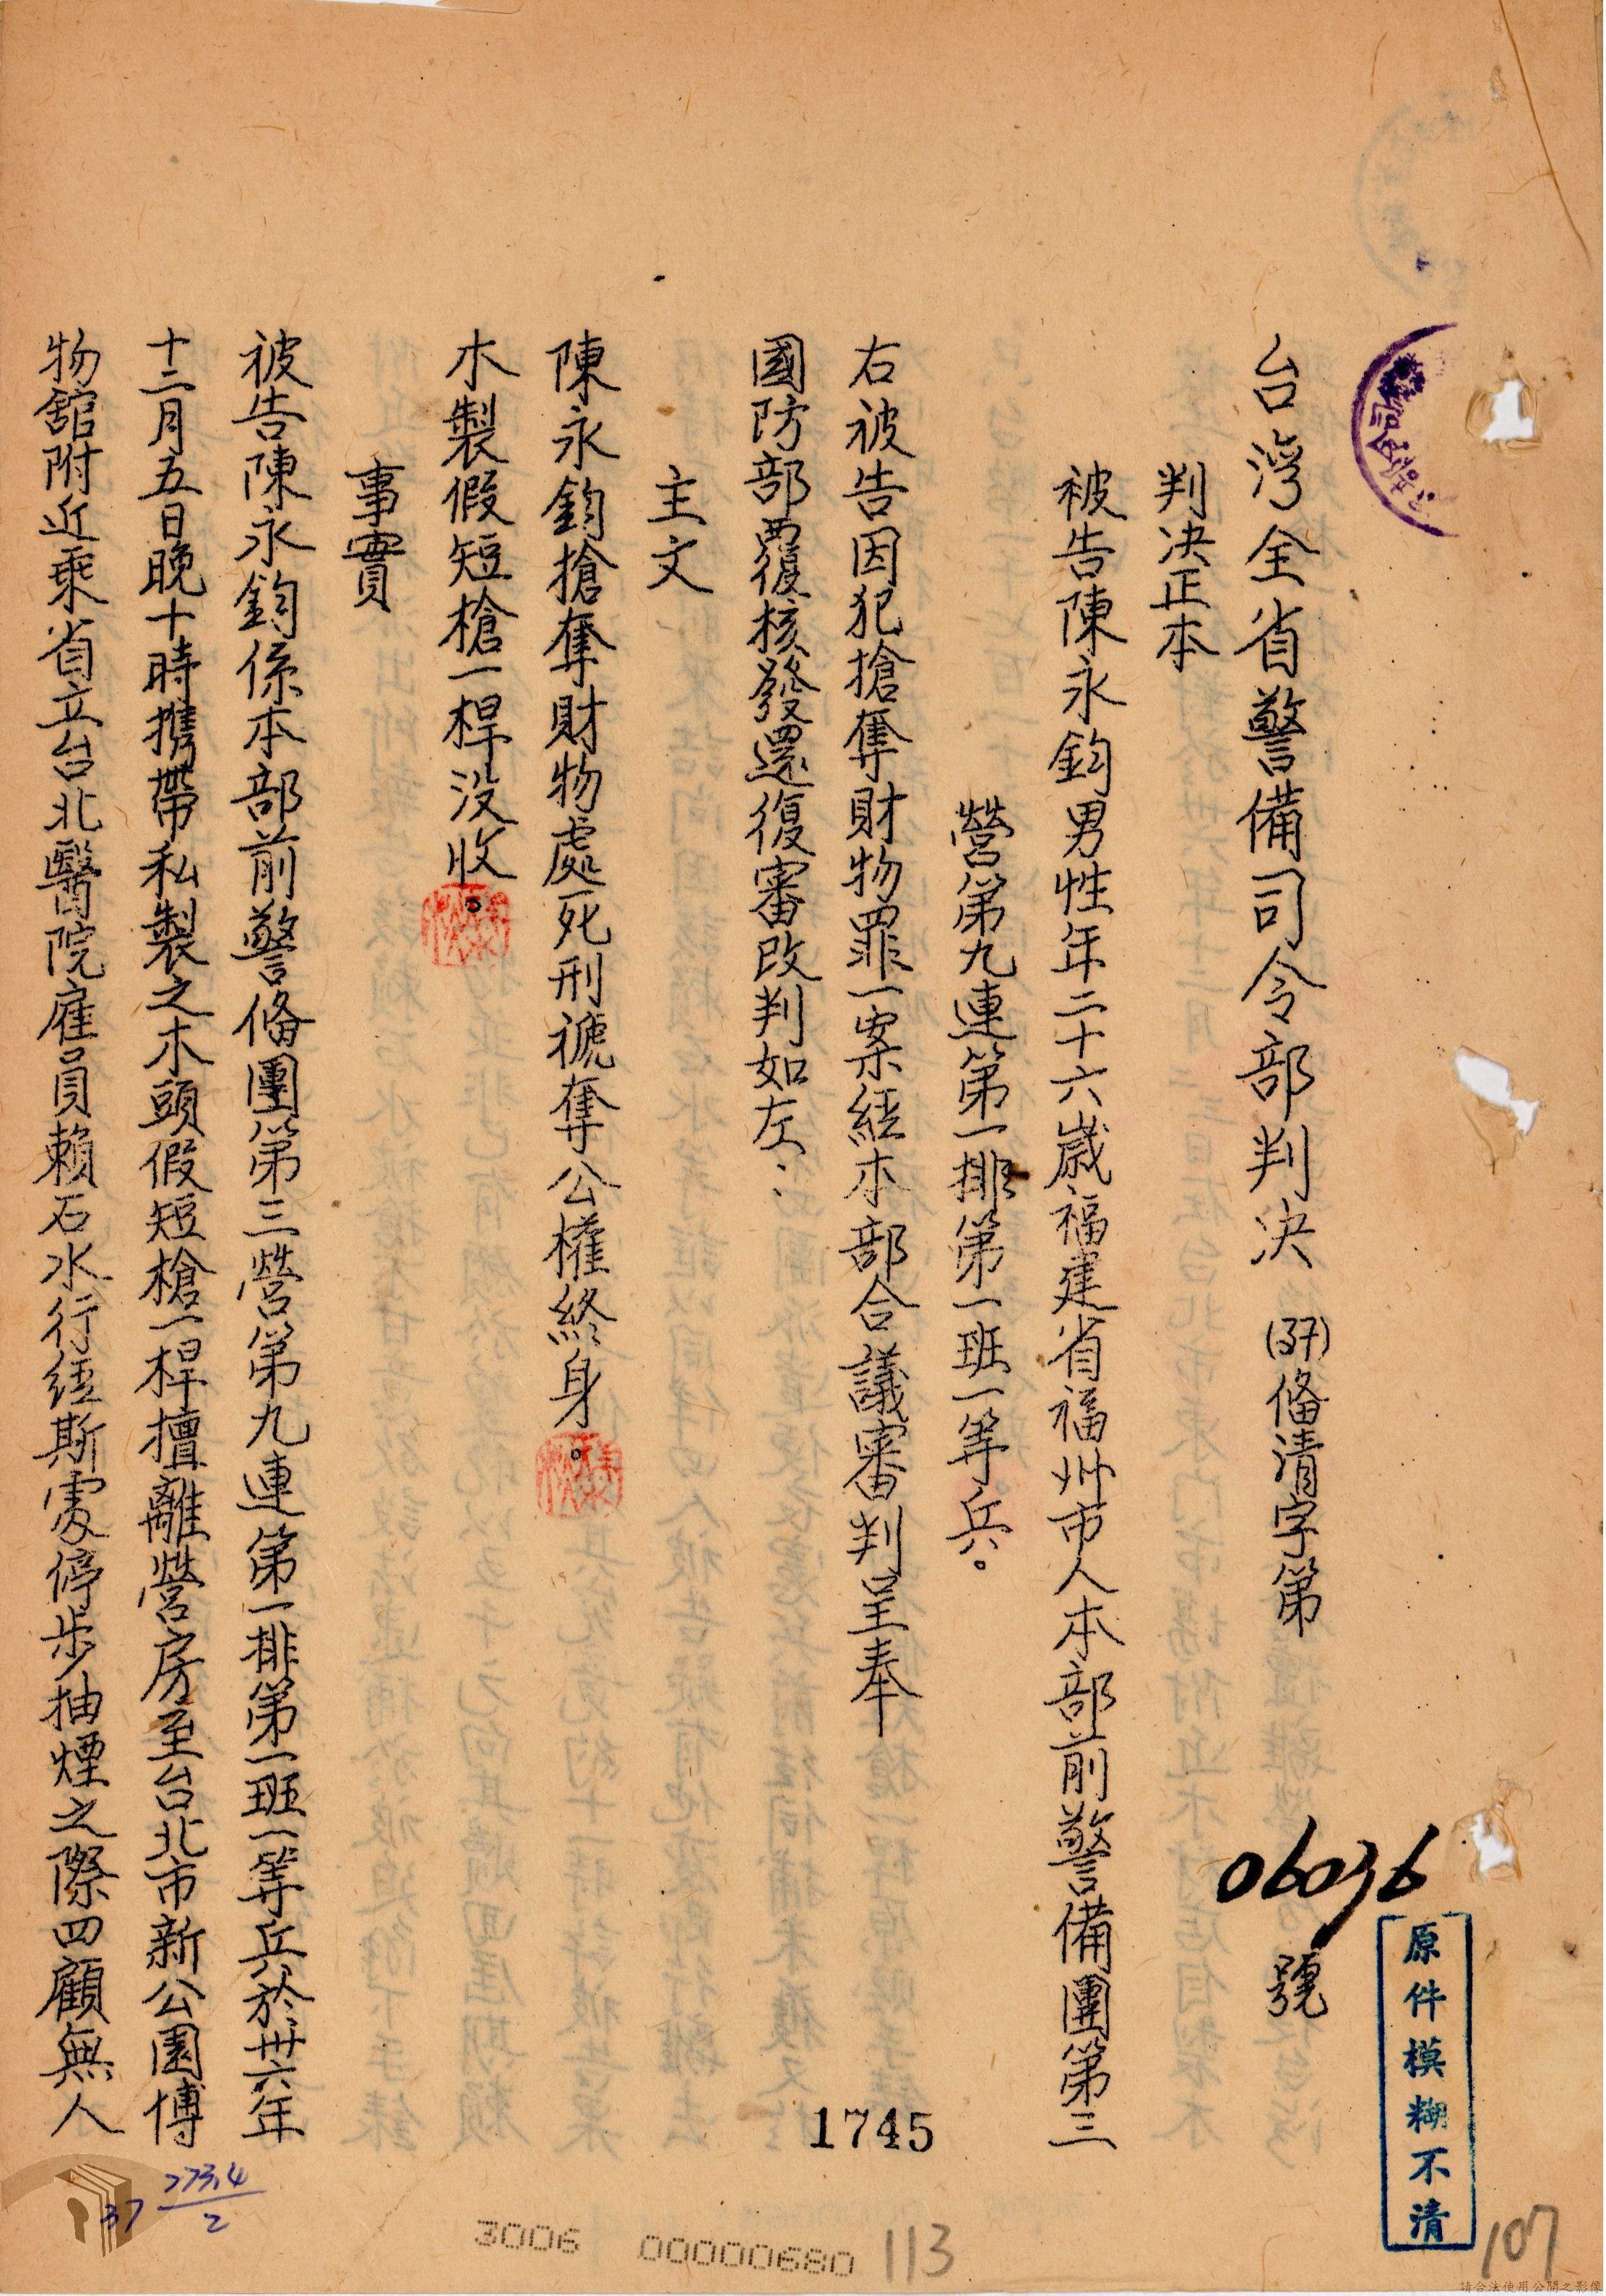 台灣全省警備司令部判决 (37)俻清字第06036號
判决正本
被告陳永鈞男性年二十六歲福建省福州市人本部前警備團第三
營第九連第一排第一班一等兵。
右被告因犯搶奪財物罪一案經本部合議審判呈奉
國防部覆核發還復審改判如左：
主文
陳永鈞搶奪財物處死刑褫奪公權終身。
木製假短槍一桿没收。
事實
被告陳永鈞係本部前警俻團第三營第九連第一排第一班一等兵於卅六年
十二月五日晚十時携帶私製之木頭假短槍一桿擅離營房至台北市新公園博
物舘附近乘省立台北醫院雇員賴石水行經斯處停步抽煙之際四顧無人
原件模糊不清
1745
273.4
37 2
3006 00000680 113
107
請合法使用公開之影像